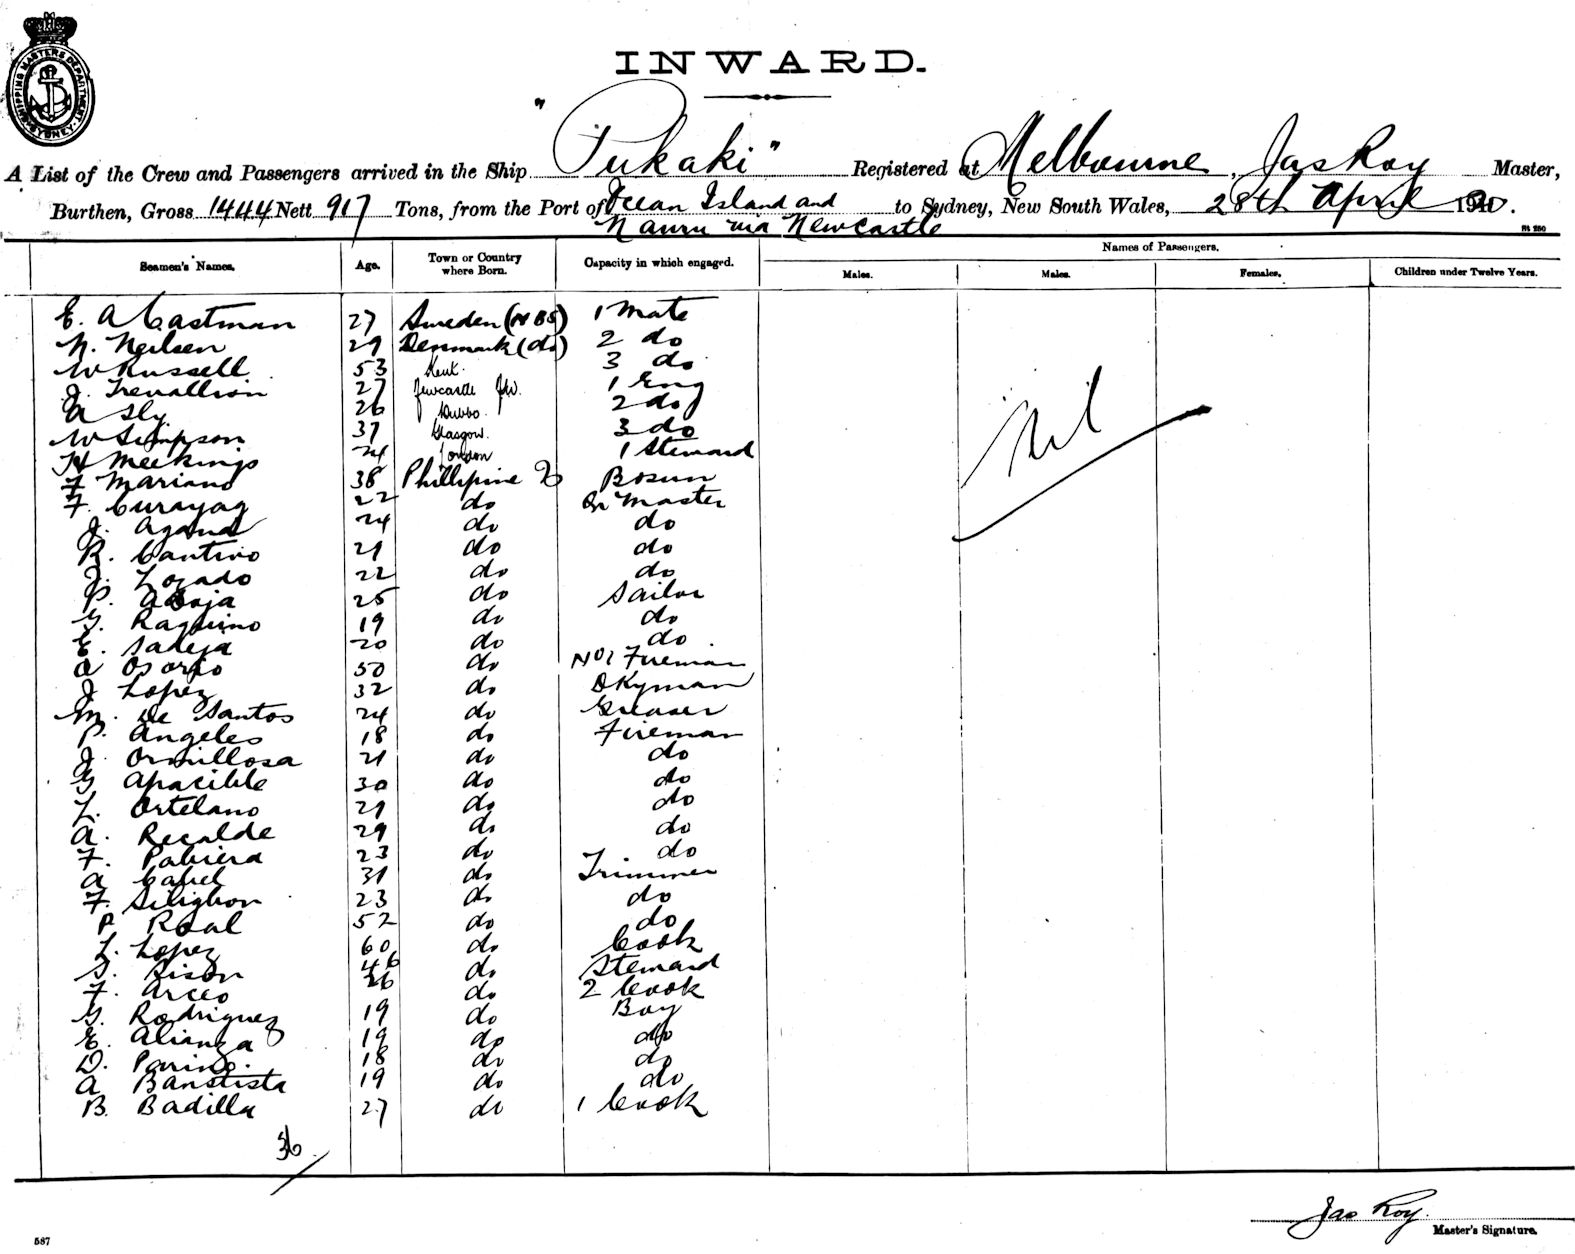 SHIPPING MASTERS DEPARTMENT SYDNEY
INWARD.
A List of the Crew and Passengers arrived in the Ship "Pukaki" Registered at Melbourne, Jas Roy Master,
Burthen, Gross 1444 Nett 917 Tons, from the Port of Ocean Island and to Sydney, New South Wales, 28th April 1920.
Nauru via Newcastle
Seamen's Names. Age. Town or Country where Born. Capacity in which engaged. Names of Passengers.
Males. Males. Females. Children under Twelve Years.
E. A Eastman 27 Sweden (NBS) 1 Mate
N. Neilsen 29 Denmark (do) 2 do
W Russell 53 Kent. 3 do
J. Trevallion 27 Newcastle 1 Eng
A Sly 26 Dubbo. 2 do
W Simpson 37 Glasgow. 3 do
H Meekings 24 London 1 Steward
F Mariano 38 Phillipine Is Bosun
F. Curayag 22 do Qr Master
J. Agana 24 do do
R. Cantino 21 do do
J. Lozado 22 do do
P. Adoja 25 do Sailor
G. Raquino 19 do do
E. Sadeja 20 do do
A Osorio 50 do No1 Fireman
J Lopez 32 do Dkyman
M. De Santos 24 do Greaser
P. Angeles 18 do Fireman
J Ormillosa 21 do do
G Apacible 30 do do
L. Ortelano 21 do do
A. Recalde 29 do do
F. Pabiera 23 do do
A Cabel 31 do Trimmer
F. Siligbon 23 do do
P Roal 52 do do
L. Lopez 60 do Cook
S. Rison 46 do Steward
F. Arceo 26 do 2 Cook
G. Rodriguez 19 do Boy
E. Alianza 19 do do
D. Parino. 18 do do
A Banstista 19 do do
B. Badilla 27 do 1 Cook
Nil
36
Jas Roy
Master's Signature.
587